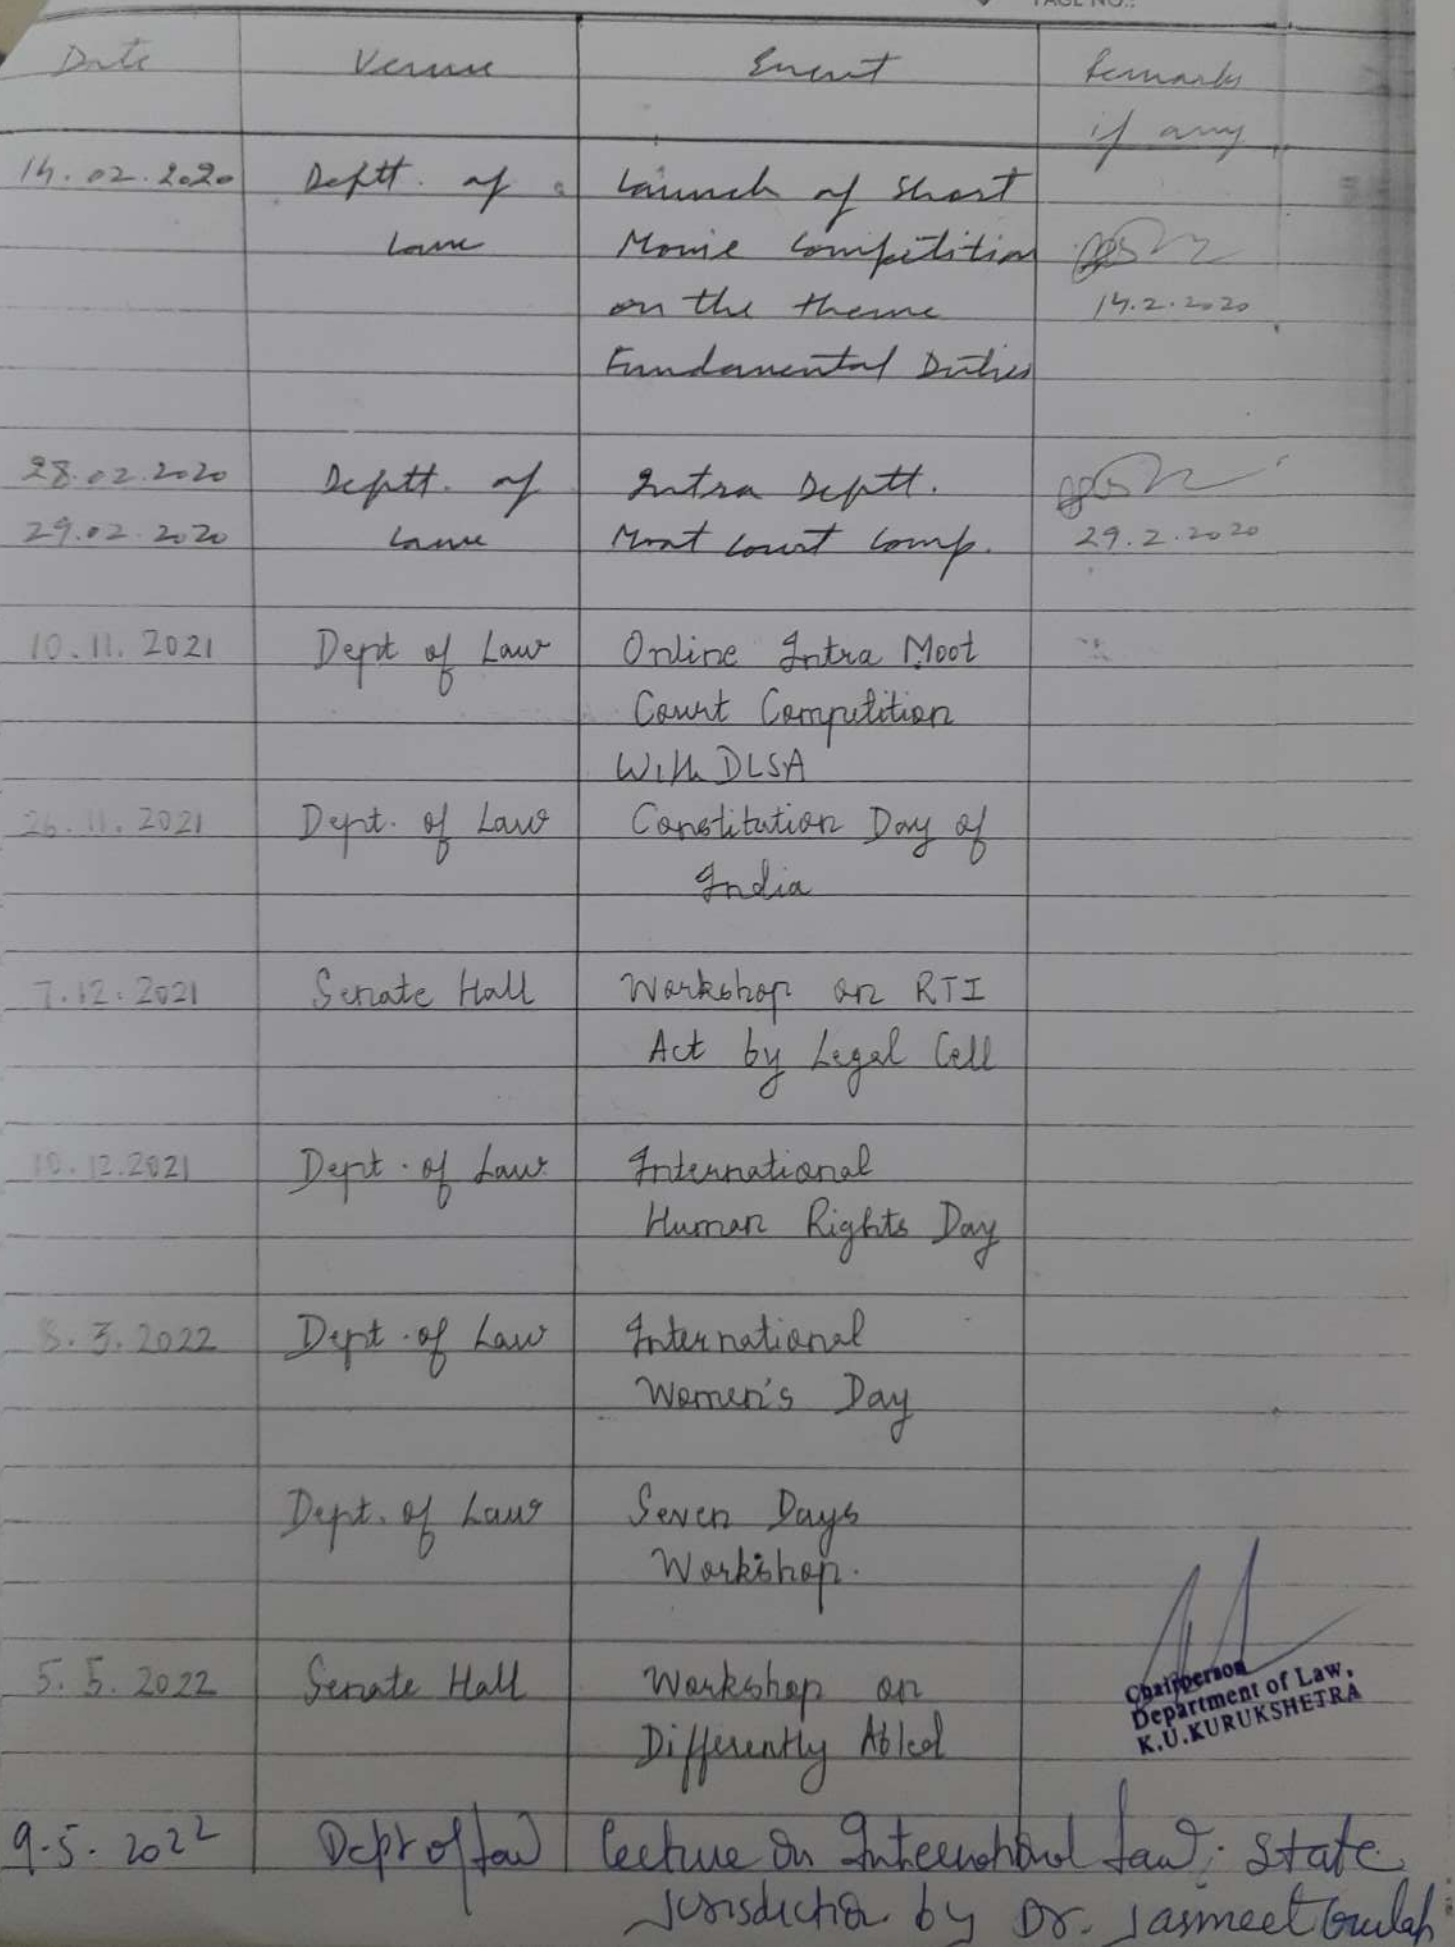 PAGE NO.:
Date Venue Event Remarks
if any
14.02.2020 Deptt. of Launch of Short
Law Movie Competition
on the theme 14.2.2020
Fundamental Duties
28.02.2020 Deptt. of Intra Deptt.
29.02.2020 Law Moot Court Comp. 29.2.2020
10.11.2021 Dept of Law Online Intra Moot
Court Competition
With DLSA
26.11.2021 Dept. of Law Constitution Day of
India
7.12.2021 Senate Hall Workshop on RTI
Act by Legal Cell
10.12.2021 Dept. of Law International
Human Rights Day
8.3.2022 Dept. of Law International
Women's Day
Dept. of Law Seven Days
Workshop.
5.5.2022 Senate Hall Workshop on
Differently Abled
Chairperson
Department of Law,
K.U.KURUKSHETRA
9.5.2022 Dept of Law Lecture on International Law: State
Jurisdiction by Dr. Jasmeet